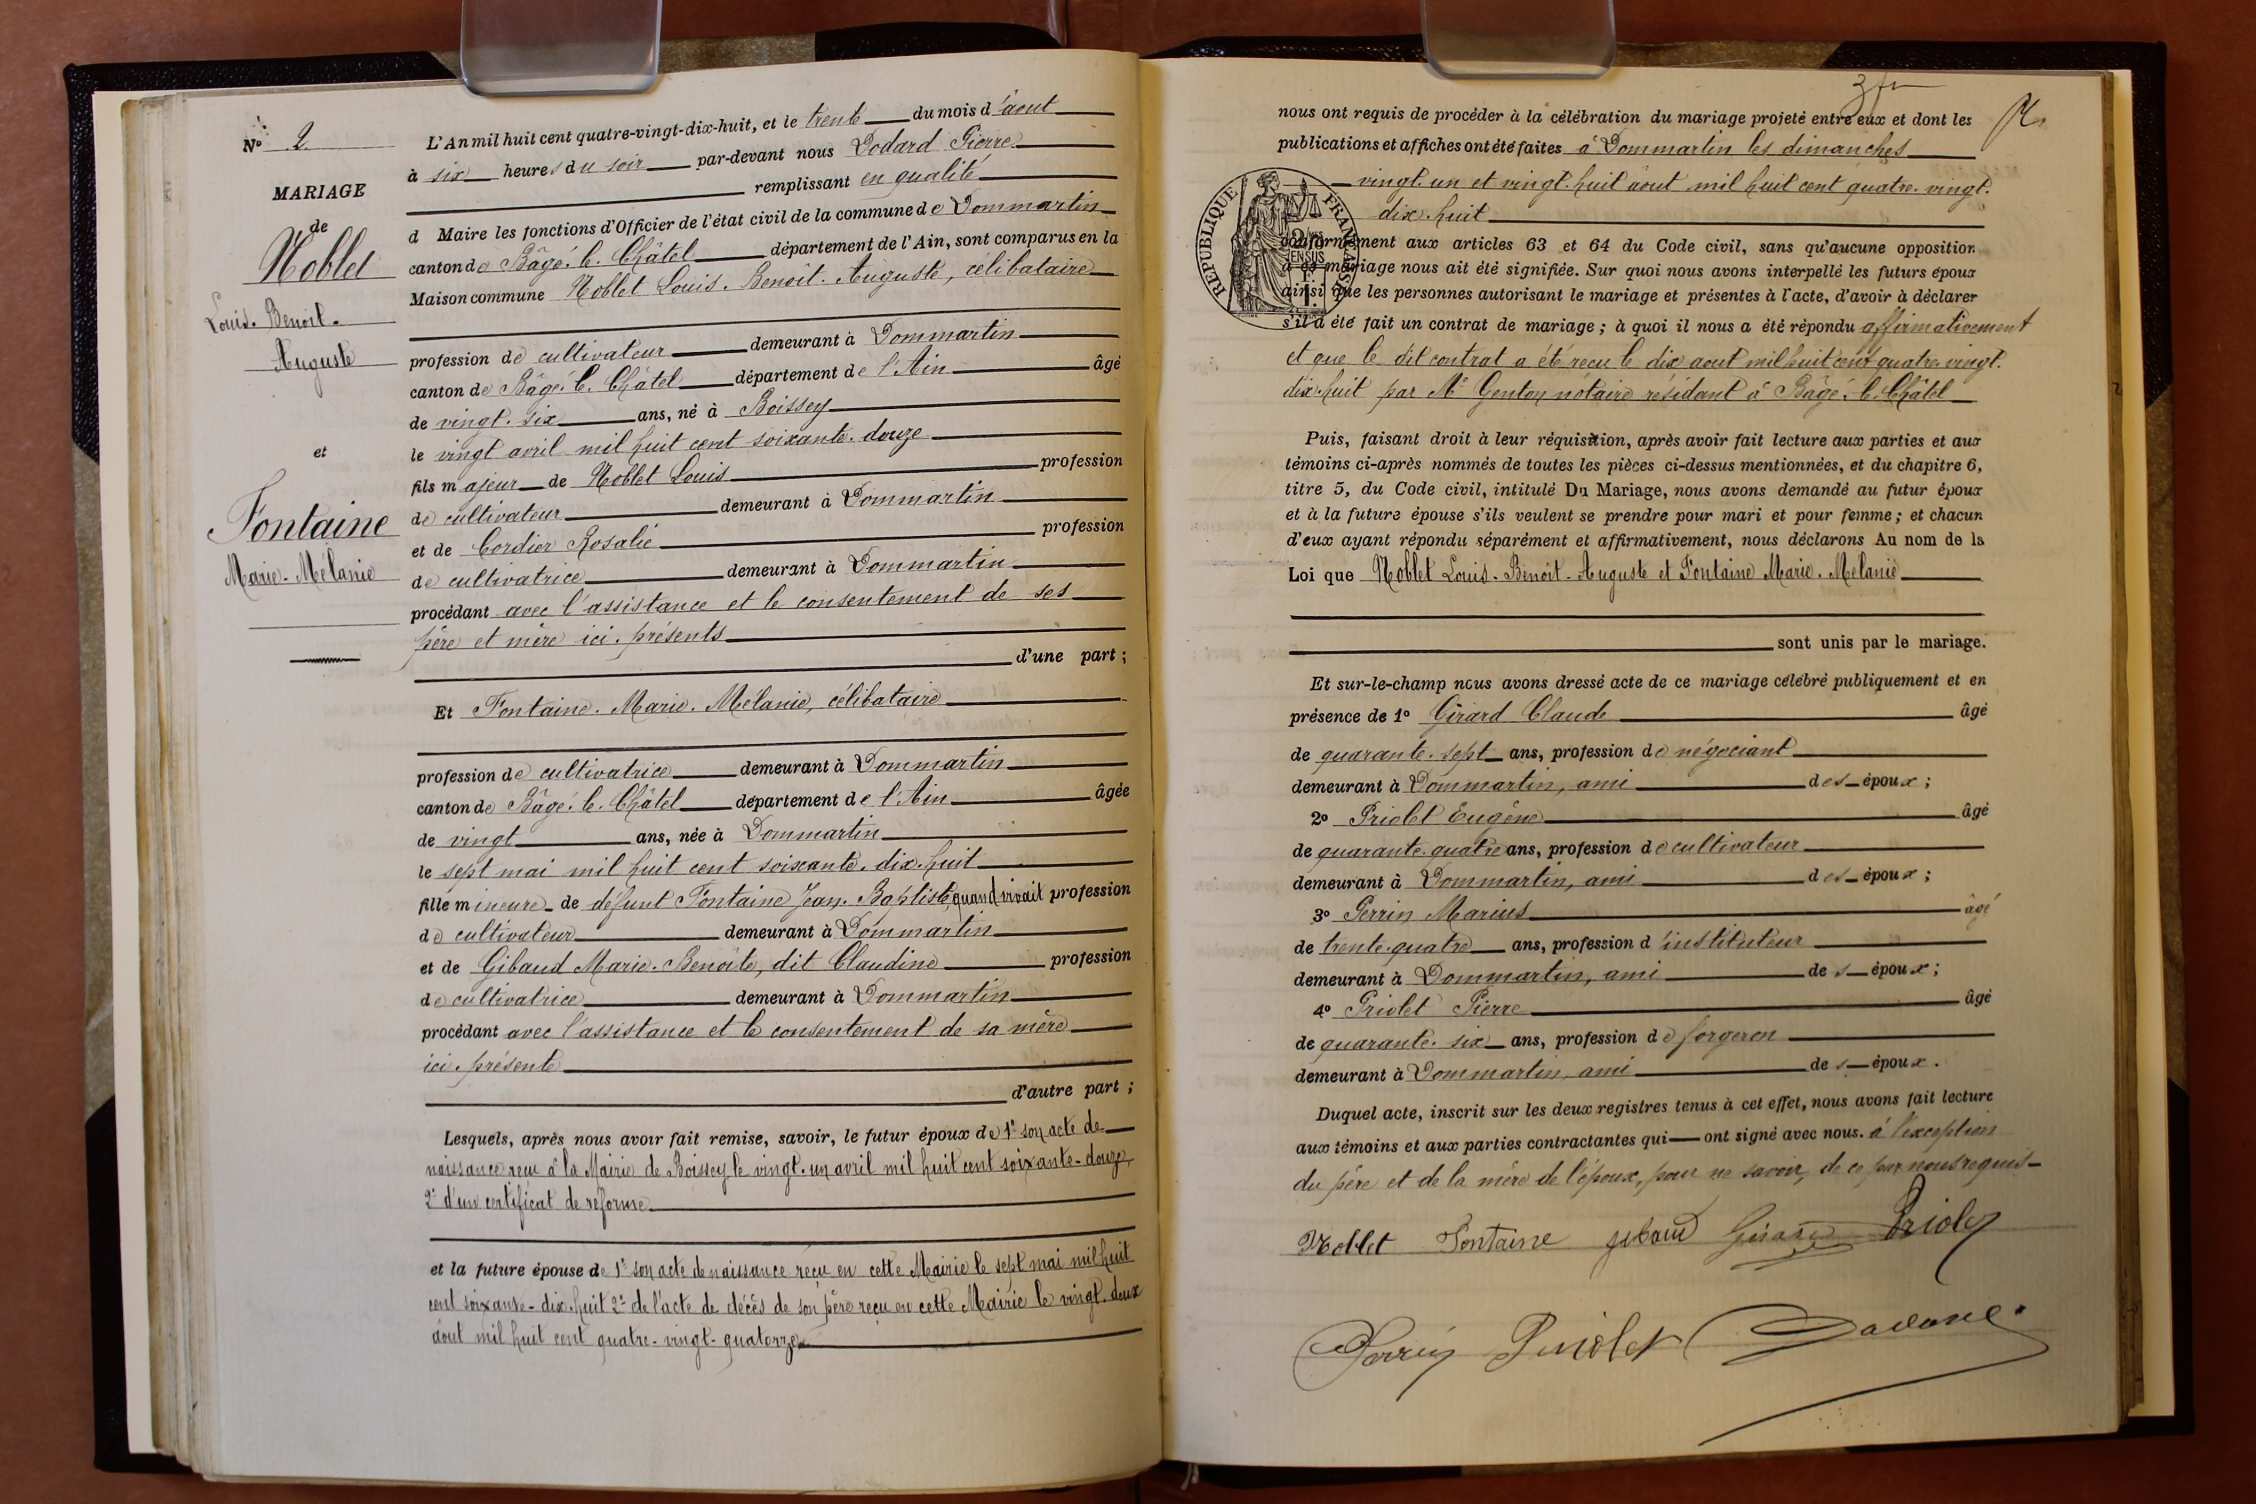 Nº 2
MARIAGE
de
Noblet
Louis. Benoit.
Auguste
et
Fontaine
Marie. Mélanie
L'An mil huit cent quatre-vingt-dix-huit, et le trente du mois d'août
à six heures du soir par-devant nous Dodard Pierre
remplissant en qualité
d Maire les fonctions d'Officier de l'état civil de la commune de Dommartin
canton de Bâgé. le. Châtel département de l'Ain, sont comparus en la
Maison commune Noblet Louis. Benoit. Auguste, célibataire
profession de cultivateur demeurant à Dommartin
canton de Bâgé. le. Châtel département de l'Ain âgé
de vingt. six ans, né à Boissey
le vingt avril mil huit cent soixante. douze
fils majeur de Noblet Louis profession
de cultivateur demeurant à Dommartin
et de Cordier Rosalie profession
de cultivatrice demeurant à Dommartin
procédant avec l'assistance et le consentement de ses
père et mère ici. présents
d'une part ;
Et Fontaine. Marie. Mélanie, célibataire
profession de cultivatrice demeurant à Dommartin
canton de Bâgé. le. Châtel département de l'Ain âgée
de vingt ans, née à Dommartin
le sept mai mil huit cent soixante. dix. huit
fille mineure de défunt Fontaine Jean. Baptiste, quand vivait profession
de cultivateur demeurant à Dommartin
et de Gibaud Marie. Benoîte, dit Claudine profession
de cultivatrice demeurant à Dommartin
procédant avec l'assistance et le consentement de sa mère
ici. présente
d'autre part ;
Lesquels, après nous avoir fait remise, savoir, le futur époux de 1º son acte de
naissance reçu à la Mairie de Boissey le vingt. un avril mil huit cent soixante-douze,
2º d'un certificat de réforme
et la future épouse de 1º son acte de naissance reçu en cette Mairie le sept mai mil huit
cent soixante-dix. huit 2º de l'acte de décès de son père reçu en cette Mairie le vingt. deux
août mil huit cent quatre-vingt-quatorze
nous ont requis de procéder à la célébration du mariage projeté entre eux et dont les
publications et affiches ont été faites à Dommartin les dimanches
vingt. un et vingt. huit août mil huit cent quatre. vingt.
dix. huit
RÉPUBLIQUE FRANÇAISE
conformément aux articles 63 et 64 du Code civil, sans qu'aucune opposition
à ce mariage nous ait été signifiée. Sur quoi nous avons interpellé les futurs époux
ainsi que les personnes autorisant le mariage et présentes à l'acte, d'avoir à déclarer
s'il a été fait un contrat de mariage ; à quoi il nous a été répondu affirmativement
et que le dit contrat a été reçu le dix aout mil huit cent quatre. vingt.
dix. huit par Mᵉ Genton notaire résidant à Bâgé. le. Châtel
Puis, faisant droit à leur réquisition, après avoir fait lecture aux parties et aux
témoins ci-après nommés de toutes les pièces ci-dessus mentionnées, et du chapitre 6,
titre 5, du Code civil, intitulé Du Mariage, nous avons demandé au futur époux
et à la future épouse s'ils veulent se prendre pour mari et pour femme ; et chacun
d'eux ayant répondu séparément et affirmativement, nous déclarons Au nom de la
Loi que Noblet Louis. Benoit. Auguste et Fontaine Marie. Mélanie
sont unis par le mariage.
Et sur-le-champ nous avons dressé acte de ce mariage célébré publiquement et en
présence de 1º Girard Claude âgé
de quarante. sept ans, profession de négociant
demeurant à Dommartin, ami des époux ;
2º Priolet Eugène âgé
de quarante. quatre ans, profession de cultivateur
demeurant à Dommartin, ami des époux ;
3º Perrin Marius âgé
de trente. quatre ans, profession d'instituteur
demeurant à Dommartin, ami des époux ;
4º Priolet Pierre âgé
de quarante. six ans, profession de forgeron
demeurant à Dommartin, ami des époux.
Duquel acte, inscrit sur les deux registres tenus à cet effet, nous avons fait lecture
aux témoins et aux parties contractantes qui ont signé avec nous. à l'exception
du père et de la mère de l'époux, pour ne savoir, de ce par nous requis
Noblet Fontaine gibaud Girard Priolet
Perrin Priolet Dodard